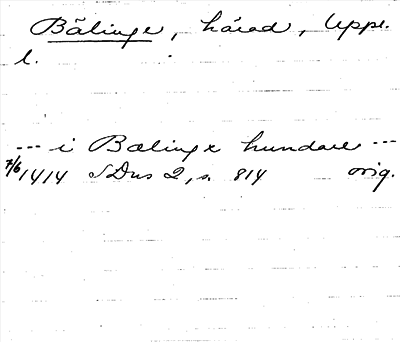 Bälinge, härad, Upps.
l.
--- i Bælinge hundare ---
7/6 1414 SDns 2, s. 814 orig.